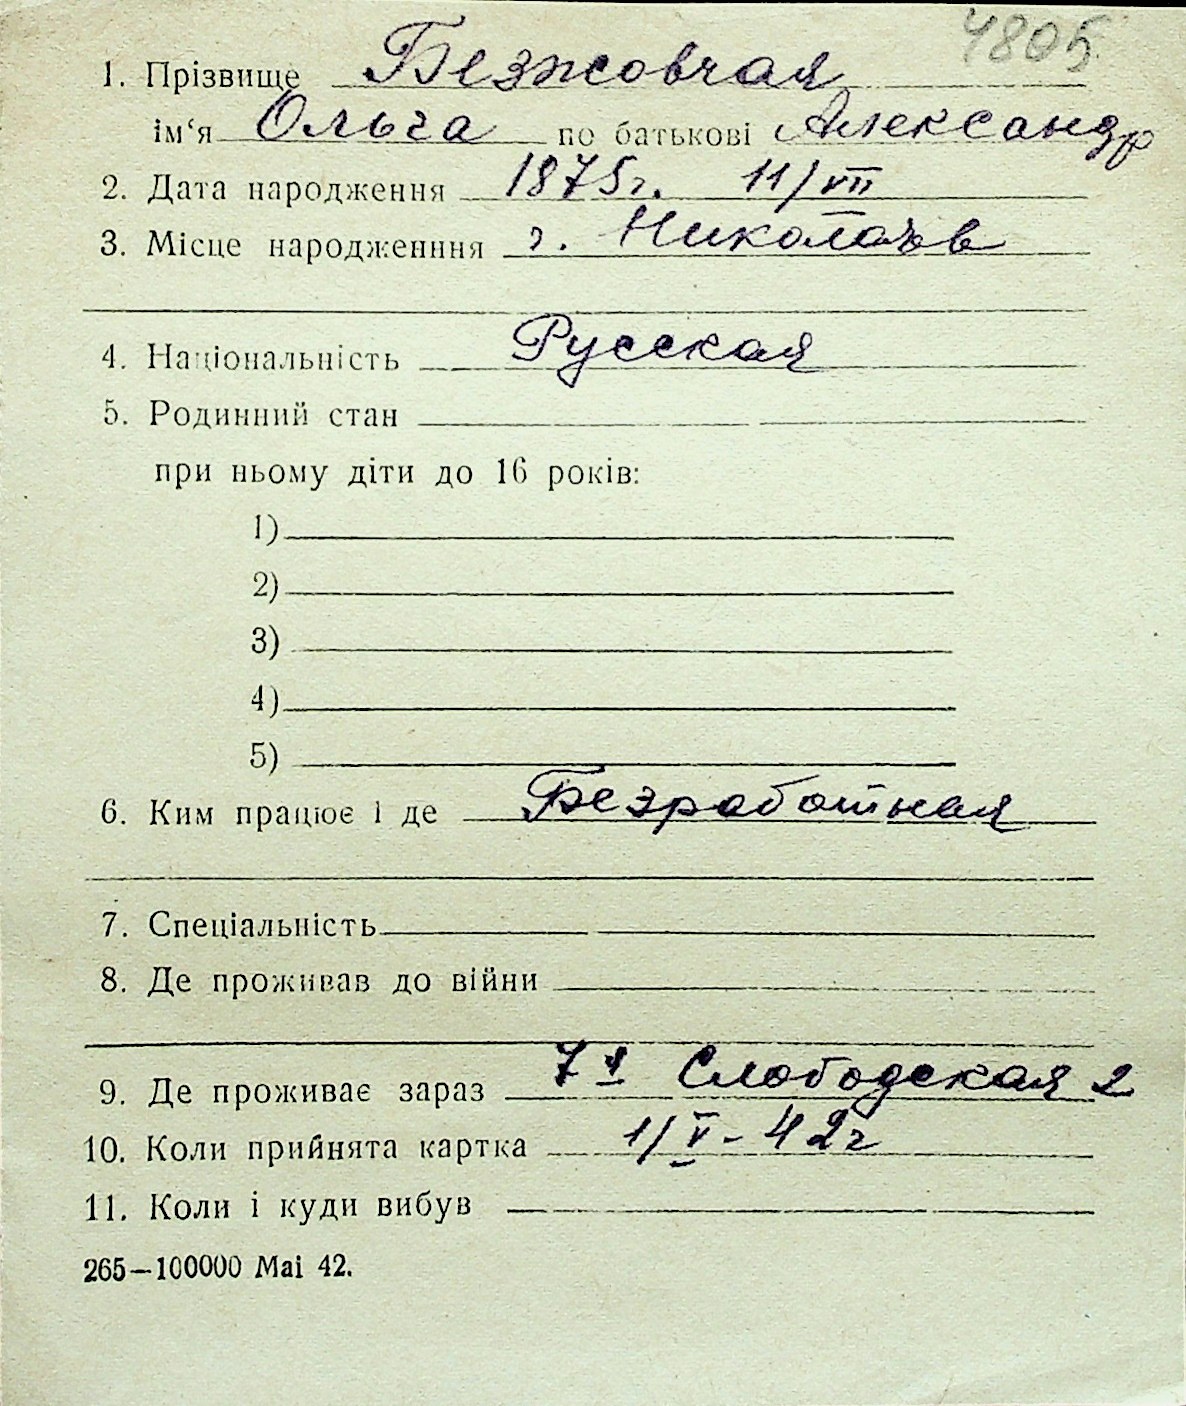 4805
1. Прізвище Безжовчая
ім‘я Ольга по батькові Александр
2. Дата народження 1875г. 11/VII
3. Місце народженння г. Николаев
4. Національність Русская
5. Родинний стан
при ньому діти до 16 років:
1)
2)
3)
4)
5)
6. Ким працює і де Безработная
7. Спеціальність
8. Де проживав до війни
9. Де проживає зараз 7я Слободская 2
10. Коли прийнята картка 1/V-42г
11. Коли і куди вибув
265—100000 Mai 42.